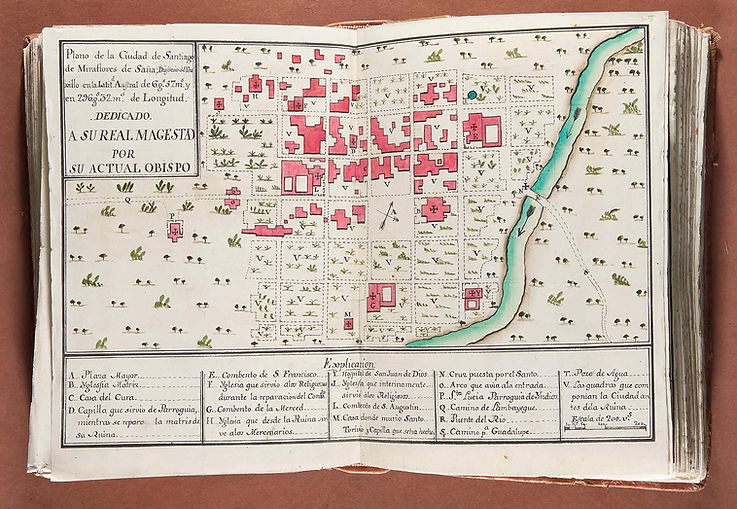 Plano de la Ciudad de Santiago
de Miraflores de Saña;
en la Latit Austral de 6g.s y
en 296g.s 32.m.s de Longitud.
DEDICADO.
A SU REAL MAGESTD
POR
SU ACTUAL OBISPO
Explicacion
A. Plaza Mayor
B. Yglessia Matriz
C. Casa del Cura
D. Capilla que sirvio de Parroquia,
mientras se reparo la matris de
su Ruina.
E. Combento de S. Francisco
F. Yglesia que sirvio alos Religiosos
durante la reparacion del
G. Combento de la Merced
H. Yglesia que desde la Ruina sir-
ve alos Mercenarios.
Y. Hospital de San Juan de Dios
J. Yglesia que interinamente
sirvio alos Religiosos.
L. Combento de S. Augustin
M. Casa donde murio Santo
Torivio y Capilla que se ha hecho
N. Cruz puesta por el Santo.
O. Arco que avia ala entrada.
P. Sta. Lucia Parroquia de Yndios
Q. Camino de Lambayeque.
R. Puente del Rio
S. Camino pa. Guadalupe.
T. Pozo de Agua
V. Las quadras que com-
ponian la Ciudad an-
tes dela Ruina.
Escala de 200. v.s